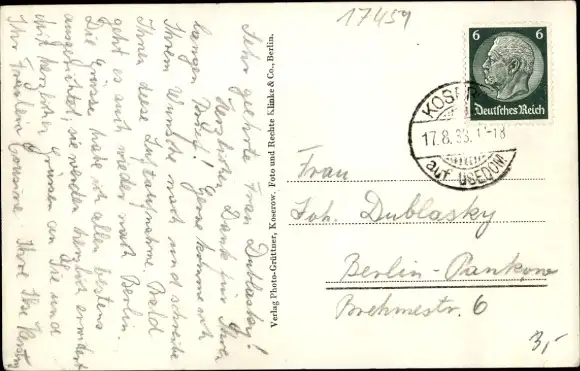 17459
6 6
Deutsches Reich
KOSEROW
17.8.33.
auf USEDOM
Sehr geehrte Frau Dublasky!
Herzlichen Dank für Ihren
langen Brief! Gerne komme ich
Ihrem Wunsche nach und schreibe
Ihnen diese Luftaufnahme. Bald
geht es auch wieder nach Berlin.
Die Grüsse habe ich allen bestens
ausgerichtet, sie werden herzlich erwidert
Mit herzlichen Grüssen an Sie und
Ihr Fräulein Cousine Ihre Ilse
Verlag Photo-Grüttner, Koserow, Foto und Rechte Klinke & Co., Berlin.
Frau
Joh. Dublasky
Berlin-Pankow
Brehmestr. 6
3,-